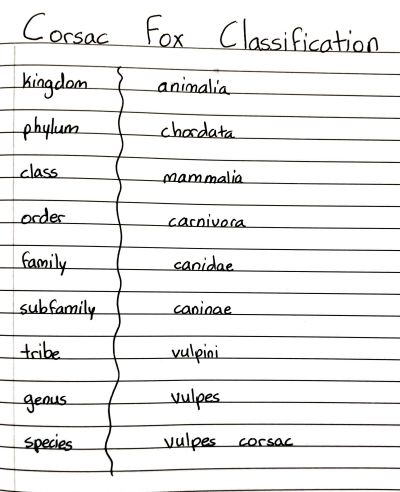 Corsac Fox Classification
kingdom animalia
phylum chordata
class mammalia
order carnivora
family canidae
subfamily caninae
tribe vulpini
genus vulpes
species vulpes corsac